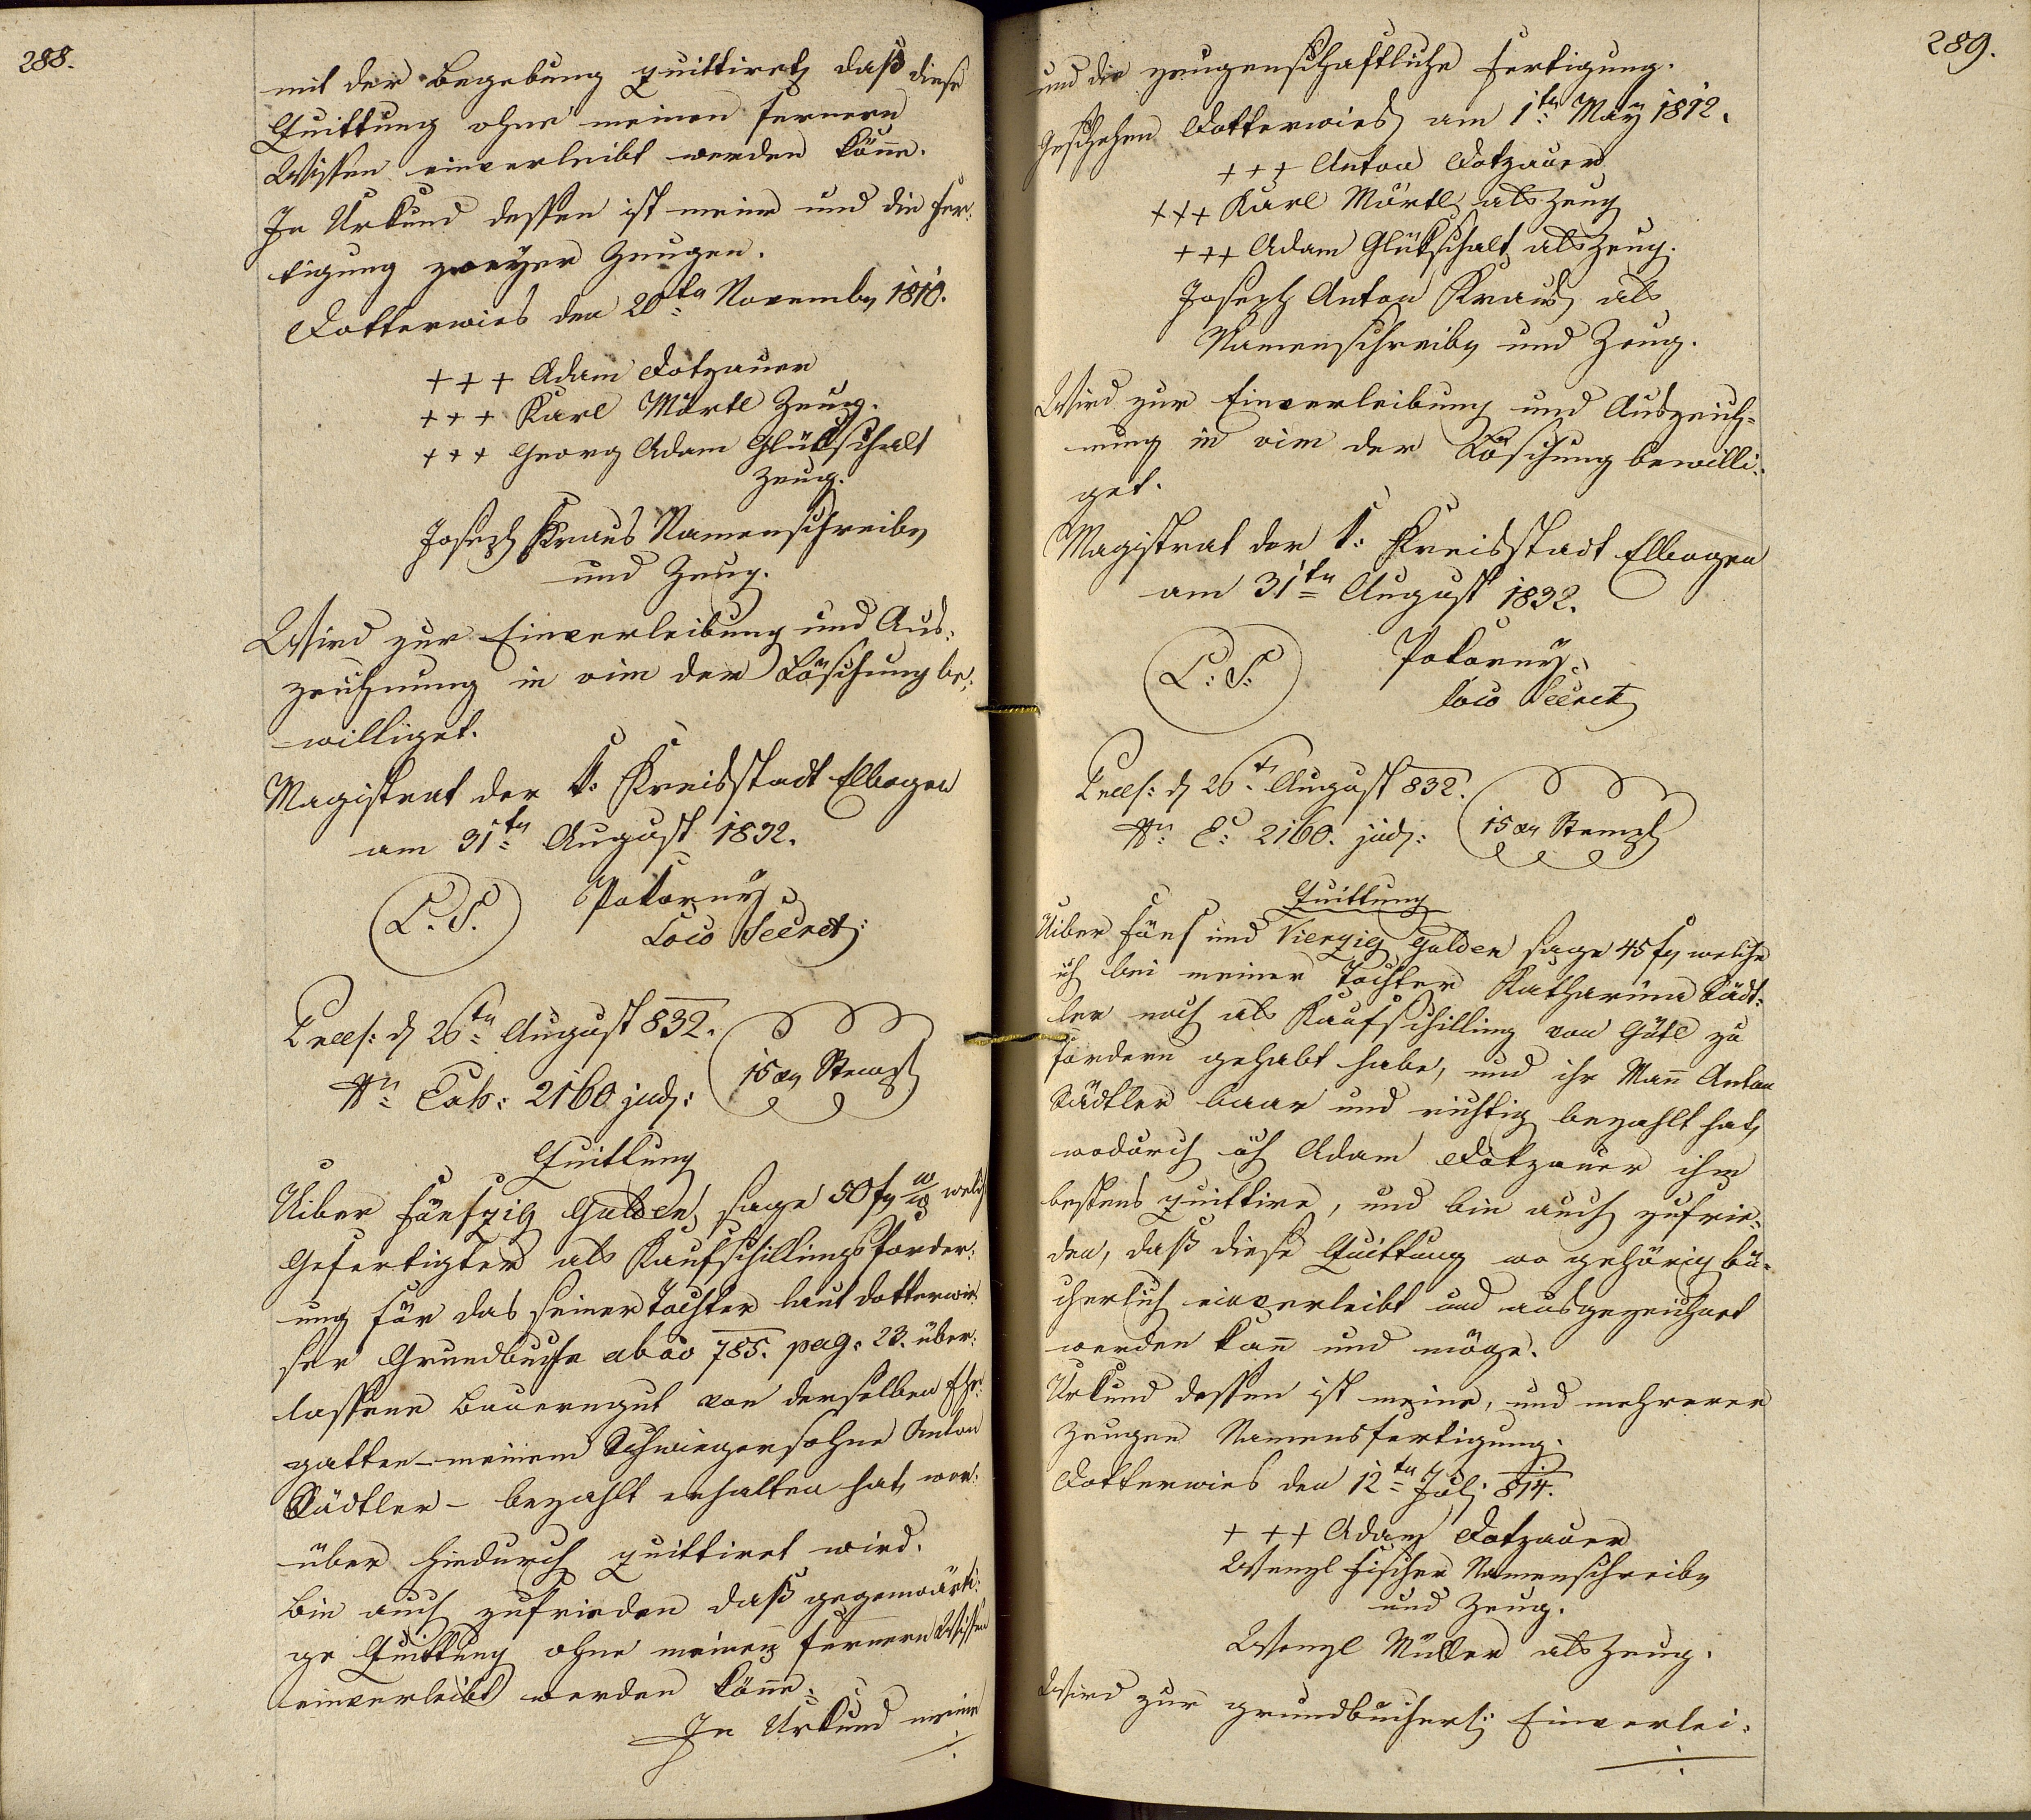 288.
mit der Begebung quittiret, daß diese
Quittung ohne meinen fernern
Wissen einverleibt werden könne.
In Urkund dessen ist meine und die Fer-
tigung zweyer Zeugen.
Dotterwies den 20ten November 1810.
+++ Adam Dotzauer
+++ Karl Märtl Zeug.
+++ Georg Adam Glükschalt
Zeug.
Joseph Kraus Namenschreiber
und Zeug.
Wird zur Einverleibung und Aus-
zeichnung in vim der Löschung be-
williget.
Magistrat der k: Kreisstadt Elbogen
am 31ten August 1832.
L. S. Pokorny
Loco Secret:
Præs: d 26ten August 832.
Nr. Exh: 2160 jud: 15 xr Stempl
Quittung
Uiber Fünfzig Gulden, sage 50 fr W/W welch
Gefertigter als Kaufschillingsforder-
ung für das seiner Tochter laut Dotterwie-
ser Grundbuche ab ao 785. pag. 23. über-
lassene Bauerngut von derselben Ehe-
gatten – meinem Schwiegersohne Anton
Sädtler – bezahlt erhalten hat, wor-
über hiedurch quittiret wird.
Bin auch zufrieden daß gegenwärti-
ge Quittung ohne meinen fernern Wissen
einverleibt werden könne.
In Urkund meine
289.
und die zeugenschaftliche Fertigung.
Geschehen Dotterwies am 1ten May 1812.
+++ Anton Dotzauer
+++ Karl Märtl als Zeug
+++ Adam Glükschalt als Zeug.
Joseph Anton Kraus als
Namenschreiber und Zeug.
Wird zur Einverleibung und Auszeich-
nung in vim der Löschung bewilli-
get.
Magistrat der k: Kreisstadt Elbogen
am 31ten August 1832.
L: S: Pokorny
loco Secret
Præs: d 26t August 832.
Nr. E: 2160. jud: 15 xr Stempl
Quittung
Uiber Fünf und Vierzig Gulden sage 45 fr welche
ich bei meiner Tochter Katharina Sädt-
ler noch als Kaufschilling von Gütl zu
fordern gehabt habe, und ihr Mañ Anton
Sädtler baar und richtig bezahlt hat,
wodurch ich Adam Dotzauer ihm
bestens quittire, und bin auch zufrie-
den, daß diese Quittung wo gehörig bü-
cherlich einverleibt und ausgezeichnet
werden kañ und möge.
Urkund dessen ist meine, und mehrerer
Zeugen Namensfertigung.
Dotterwies den 12ten Juli 814.
+++ Adam Dotzauer
Wenzl Fischer Namenschreiber
und Zeug.
Wenzl Müller als Zeug.
Wird zur grundbücherl: Einverlei-